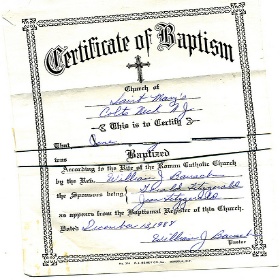 Certificate of Baptism
Church of
Saint Mary's
Colts Neck N.J.
This is to Certify
That
was
Baptized
According to the Rite of the Roman Catholic Church
by the Rev. William J. Bausch
the Sponsors being Gerald Fitzgerald
Jean Fitzgerald
as appears from the Baptismal Register of this Church.
Dated December 13, 1987
William J. Bausch
Pastor